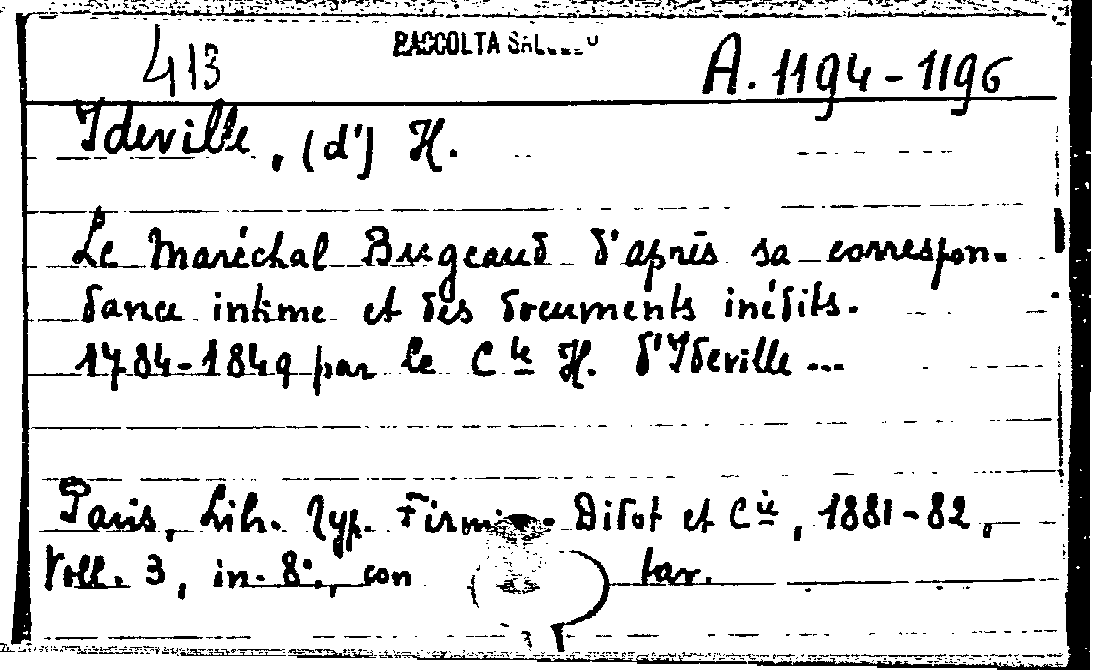 413
RACCOLTA
A. 1194-1196
Ideville, (d') H.
Le Maréchal Bugeaud d'après sa correspon-
dance intime et des documents inédits.
1784-1849 par le Cte H. d'Ideville ...
Paris, Lib. Typ. Firmin-Didot et Cie, 1881-82,
Voll. 3, in-8°, con tav.